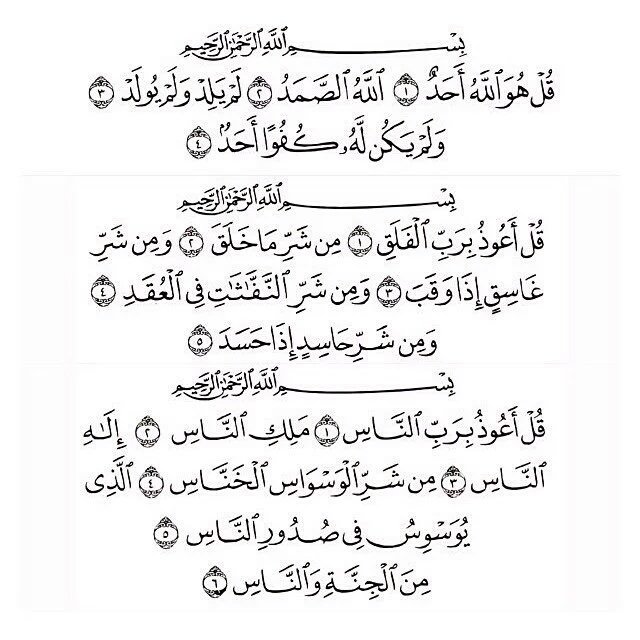 بِسْمِ ٱللَّهِ ٱلرَّحْمَـٰنِ ٱلرَّحِيمِ
قُلْ هُوَ ٱللَّهُ أَحَدٌ ١ ٱللَّهُ ٱلصَّمَدُ ٢ لَمْ يَلِدْ وَلَمْ يُولَدْ ٣
وَلَمْ يَكُن لَّهُۥ كُفُوًا أَحَدٌۢ ٤
بِسْمِ ٱللَّهِ ٱلرَّحْمَـٰنِ ٱلرَّحِيمِ
قُلْ أَعُوذُ بِرَبِّ ٱلْفَلَقِ ١ مِن شَرِّ مَا خَلَقَ ٢ وَمِن شَرِّ
غَاسِقٍ إِذَا وَقَبَ ٣ وَمِن شَرِّ ٱلنَّفَّـٰثَـٰتِ فِى ٱلْعُقَدِ ٤
وَمِن شَرِّ حَاسِدٍ إِذَا حَسَدَ ٥
بِسْمِ ٱللَّهِ ٱلرَّحْمَـٰنِ ٱلرَّحِيمِ
قُلْ أَعُوذُ بِرَبِّ ٱلنَّاسِ ١ مَلِكِ ٱلنَّاسِ ٢ إِلَـٰهِ
ٱلنَّاسِ ٣ مِن شَرِّ ٱلْوَسْوَاسِ ٱلْخَنَّاسِ ٤ ٱلَّذِى
يُوَسْوِسُ فِى صُدُورِ ٱلنَّاسِ ٥
مِنَ ٱلْجِنَّةِ وَٱلنَّاسِ ٦